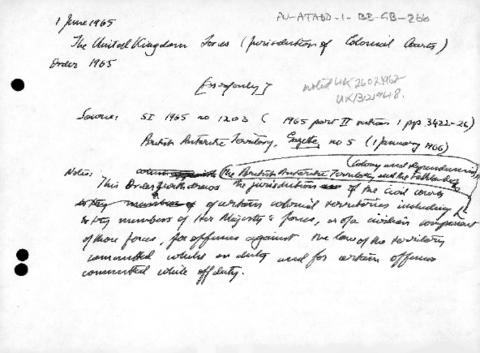 1 June 1965
AU-ATADD-1-BB-GB-266
The United Kingdom Forces (Jurisdiction of Colonial Courts)
Order 1965
noted UK26021962
[        ]
Source: SI 1965 no 1203 (1965 part II section 1 pp 3422-26)
British Antarctic Territory. Gazette no 5 (1 January 1966)
(Colony and Dependencies)
Notes: (the British Antarctic Territory and the Falkland
This Order the jurisdiction of the civil courts
of certain colonial territories including
to try members of Her Majesty's forces, or of a civilian component
of those forces, for offences against the law of the territory
committed whilst on duty and for certain offences
committed while off duty.